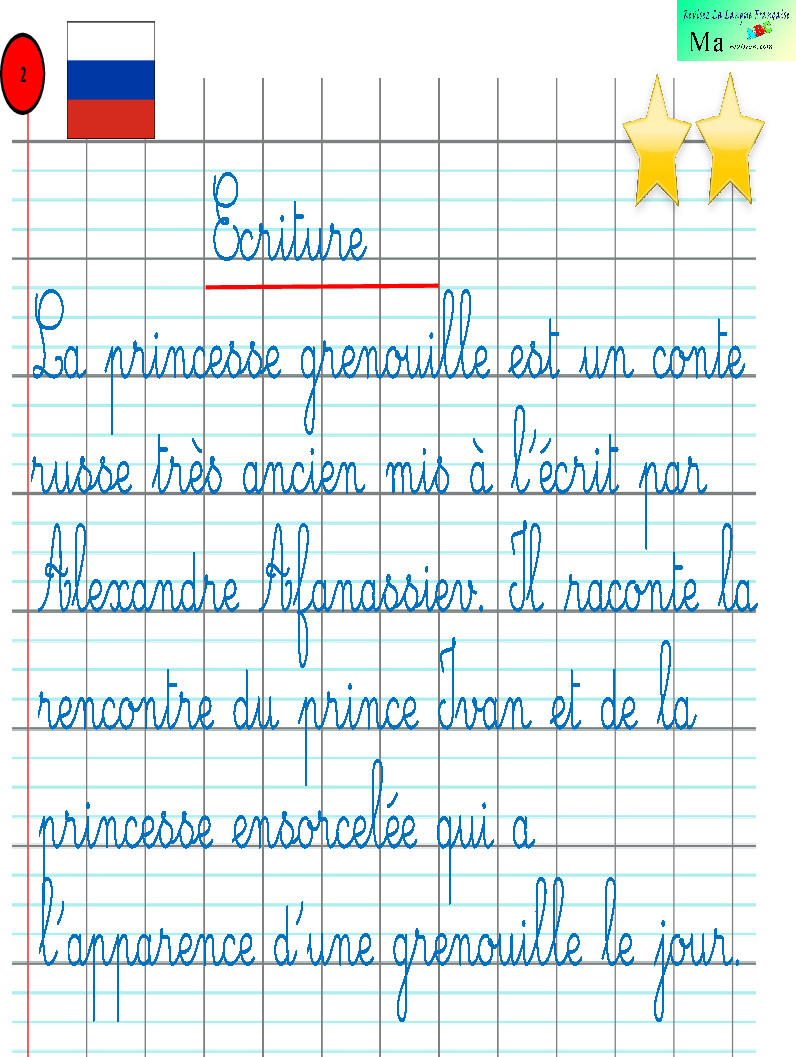 Revisez La Langue Française
2
Ma
Ecriture
La princesse grenouille est un conte
russe très ancien mis à l'écrit par
Alexandre Afanassiev. Il raconte la
rencontre du prince Ivan et de la
princesse ensorcelée qui a
l'apparence d'une grenouille le jour.